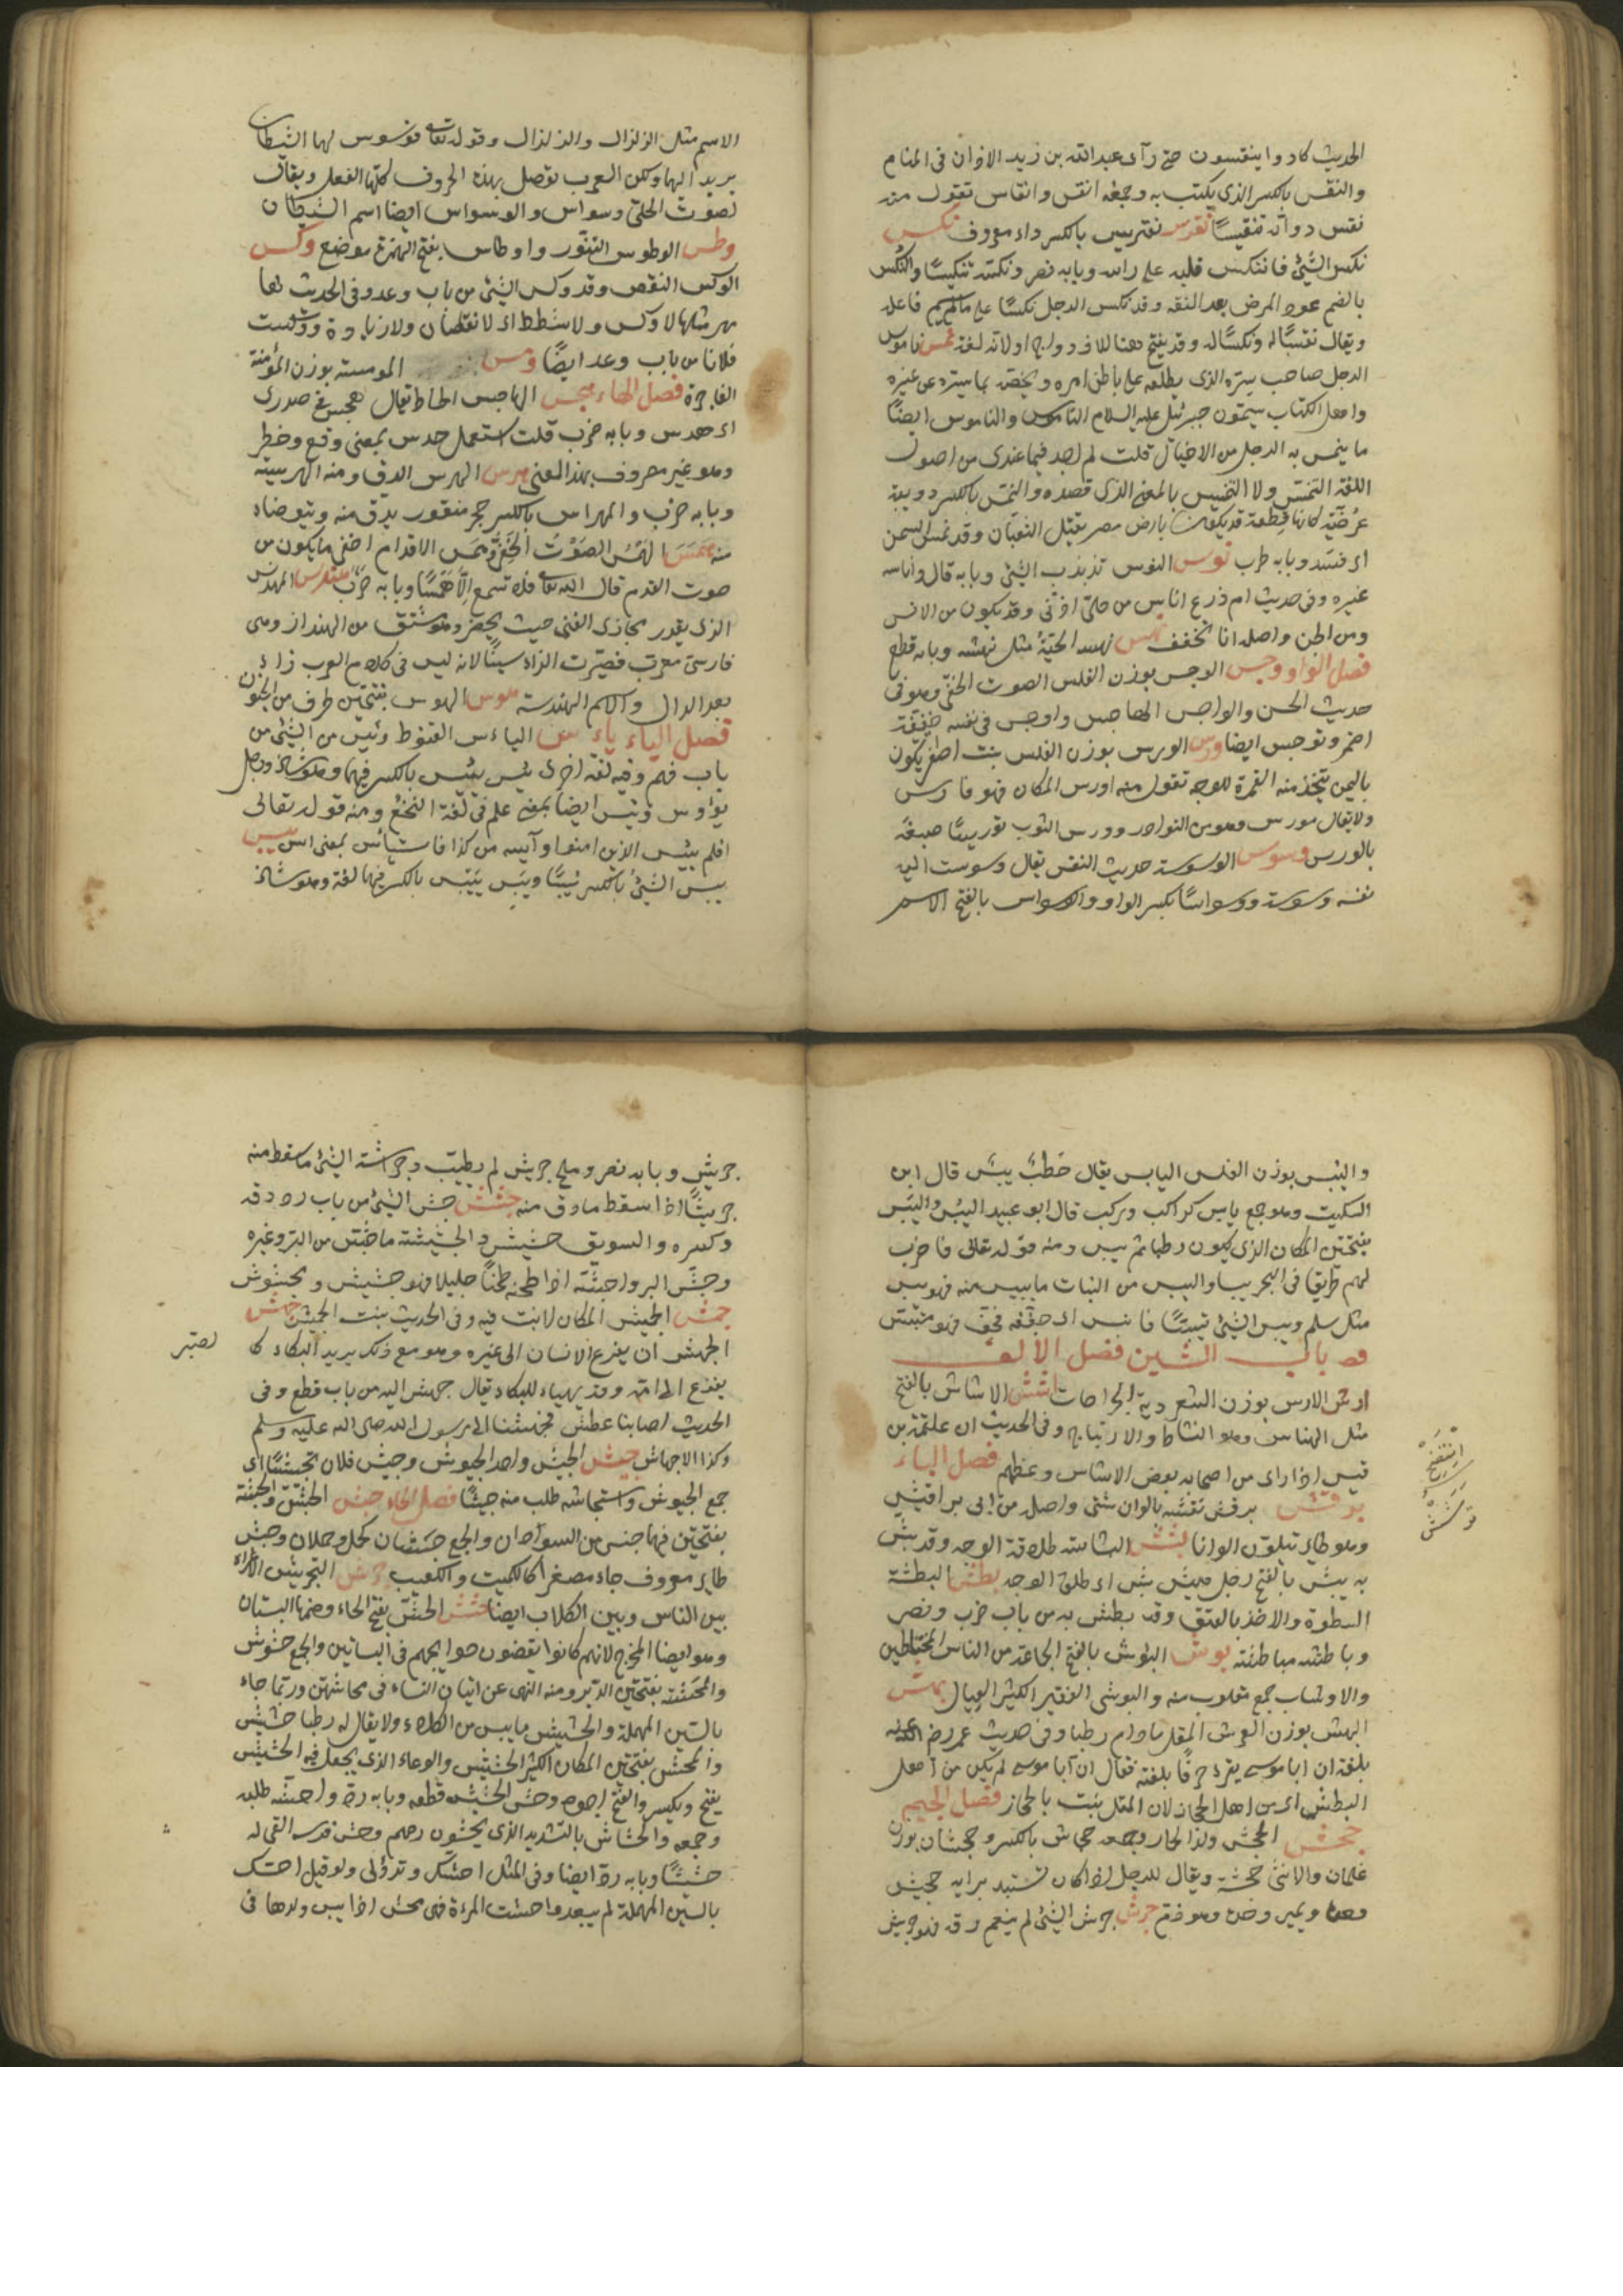 الحديث كادوا ينقسون حتى رآى عبدالله بن زيد الاذان فى المنام
والنقس بالكسر الذى يكتب به وجمعه انقس وانقاس تقول منه
نقس دواته تنقيسًا نقرس نقريس بالكسر داء معروف نكس
نكس الشئ فانتكس قلبه على راسه وبابه نصر ونكسه تنكيسًا والنكس
بالضم عود المرض بعد النقه وقد نكس الرجل نكسًا على مالم يسم فاعله
ويقال تعسًا له ونكسًا له وقد يفتح هنا للازدواج او لانه لغة نمس ناموس
الرجل صاحب سره الذى يطلعه على باطن امره ويخصه بما يستره عن غيره
واهل الكتاب يسمون جبرئيل عليه السلام الناموس والناموس ايضًا
ما ينمس به الرجل من الاحتيال قلت لم اجد فيما عندى من اصول
اللغة التنمس ولا التنميس بالمعنى الذى قصده والنمس بالكسر دويبة
عرضية كانها قطعة قديد يكون بارض مصر يقتل الثعبان وقد نمس السمن
اى فسد وبابه طرب نوس النوس تذبذب الشئ وبابه قال واناسه
غيره وفى حديث ام زرع اناس من حلى اذنى وقد يكون من الانس
ومن الجن واصله اناس فخفف نهس نهسه الحية مثل نهشه وبابه قطع
فصل الواو وجس الوجس بوزن الفلس الصوت الخفى وهو فى
حديث الحسن والواجس الهاجس واوجس فى نفسه خيفة
اضمر وتوجس ايضا ورس الورس بوزن الفلس نبت اصفر يكون
باليمن يتخذ منه الغمرة للوجه تقول منه اورس المكان فهو وارس
ولا يقال مورس وهو من النوادر وورس الثوب توريسًا صبغه
بالورس وسوس الوسوسة حديث النفس يقال وسوست اليه
نفسه وسوسة ووسواسًا بكسر الواو والوسواس بالفتح الاسم
الاسم مثل الزلزال والزلزال وقوله تعالى فوسوس لهما الشيطان
يريد اليهما ولكن العرب توصل بهذه الحروف كلها الفعل ويقال
لصوت الحلى وسواس والوسواس ايضا اسم الشيطان
وطس الوطوس التنور واوطاس بفتح الهمزة موضع وكس
الوكس النقص وقد وكس الشئ من باب وعد وفى الحديث لها
مهر مثلها لا وكس ولا شطط اى لا نقصان ولا زيادة ووكست
فلانا من باب وعد ايضًا ومس المومسة بوزن المؤمنة
الفاجرة فصل الهاء هجس الهاجس الخاطر يقال هجس فى صدرى
اى حدس وبابه ضرب قلت استعمل حدس بمعنى وقع وخطر
وهو غير معروف بهذا المعنى هرس الهرس الدق ومنه الهريسة
وبابه ضرب والمهراس بالكسر حجر منقور يدق منه ويتوضاء
منه همس الهمس الصوت الخفى وهمس الاقدام اخفى ما يكون من
صوت القدم قال الله تعالى فلا تسمع الا همسًا وبابه ضرب هندس المهندس
الذى يقدر مجارى القنى حيث يحفر وهو مشتق من الهنداز وهى
فارسى معرب فصيرت الزاء سينًا لانه ليس فى كلام العرب زاء
بعد الدال والاسم الهندسة هوس الهوس بفتحتين طرف من الجنون
فصل الياء ياءس الياءس القنوط ويئس من الشئ من
باب فهم وفيه لغة اخرى يئس ييئس بالكسر فيهما وهو شاذ ورجل
يؤوس ويئس ايضا بمعنى علم فى لغة النخع ومنه قوله تعالى
افلم ييئس الذين امنوا وآيسه من كذا فاستياس بمعنى ايس يبس
يبس الشئ بالكسر يبسًا ويبس ييبس بالكسر فيهما لغة وهو شاذ
واليبس بوزن الفلس اليابس يقال حطب يبس قال ابن
السكيت وهو جمع يابس كراكب وركب قال ابو عبيد اليبس واليبس
بفتحتين المكان الذى يكون رطبا ثم يبس ومنه قوله تعالى فاضرب
لهم طريقا فى البحر يبسا واليبس من النبات ما يبس منه فهو يبس
مثل سلم ويبس الشئ تيبيسًا فاتبس اى جففه فجف فهو متبس
باب الشين فصل الالف
ارش الارش بوزن الشعر دية الجراحات اشش الاشاش بالفتح
مثل الهشاش وهو النشاط والارتياح وفى الحديث ان علقمة بن
قيس اذا راى من اصحابه بعض الاشاش وعظهم فصل الباء
برقش برقش نقشه بالوان شتى واصله من ابى براقش
وهو طاير يتلون الوانا بشش البشاشة طلاقة الوجه وقد بش
به يبش بالفتح رجل هش بش اى طلق الوجه بطش البطشة
السطوة والاخذ بالعنف وقد بطش به من باب ضرب ونصر
وباطشه مباطشة بوش البوش بالفتح الجماعة من الناس المختلطين
والاوشاب جمع مقلوب منه والبوشى الفقير الكثير العيال بهش
البهش بوزن العرش المقل مادام رطبا وفى حديث عمر رضى الله عنه
بلغه ان ابا موسى يقرء حرفًا بلغته فقال ان ابا موسى لم يكن من اهل
البطش اى من اهل الحجاز لان المقل ينبت بالحجاز فصل الجيم
جحش الجحش ولد الحمار وجمعه جحاش بالكسر وجحشان بوزن
غلمان والانثى جحشة ويقال للرجل اذا كان يستبد برايه جحيش
وحده وعيير وحده وهو ذم جرش جرش الشئ لم ينعم دقه فهو جريش
انتفخ
جريش وبابه نصر وملح جريش لم يطيب وجراشة الشئ ما سقط منه
جريشًا اذا سقط مادق منه جشش جش الشئ من باب رد دقه
وكسره والسويق جشيش والجشيشة ما جش من البر وغيره
وجش البر واجشه اذا طحنه طحنًا جليلا فهو جشيش ومجشوش
جمش الجميش المكان لا نبت فيه وفى الحديث بنت الجميش جهش
الجهش ان يفزع الانسان الى غيره وهو مع ذلك يريد البكاء كا
لصبى
يفزع الى امه وقد يهياء للبكاء يقال جهش اليه من باب قطع وفى
الحديث اصابنا عطش فجهشنا الى رسول الله صلى الله عليه وسلم
وكذا الاجهاش جيش الجيش واحد الجيوش وجيش فلان تجييشًا اى
جمع الجيوش واستجاشه طلب منه جيشًا فصل الحاء حبش الحبش والحبشة
بفتحتين فيهما جنس من السودان والجمع حبشان كحمل وحملان وحبش
طاير معروف جاء مصغرا كالكميت والكعيب حرش التحريش الاغراء
بين الناس وبين الكلاب ايضا حشش الحش بفتح الحاء وضمها البستان
وهو ايضا المخرج لانهم كانوا يقضون حوايجهم فى البساتين والجمع حشوش
والمحشة بفتحتين الدبر ومنه النهى عن اتيان النساء فى محاشهن وربما جاء
بالسين المهملة والحشيش ما يبس من الكلاء ولا يقال له رطبا حشيش
والمحش بفتحتين المكان الكثير الحشيش والوعاء الذى يجعل فيه الحشيش
يفتح ويكسر والفتح اجود وحش الحشيش قطعه وبابه رد واحتشه طلبه
وجمعه والحشاش بالتشديد الذى يحشون رحهم وحش فرسه القى له
حشيشًا وبابه رد ايضا وفى المثل احشك وتروثنى ولو قيل احسك
بالسين المهملة لم يبعد واحشت المرءة فهى محش اذا يبس ولدها فى